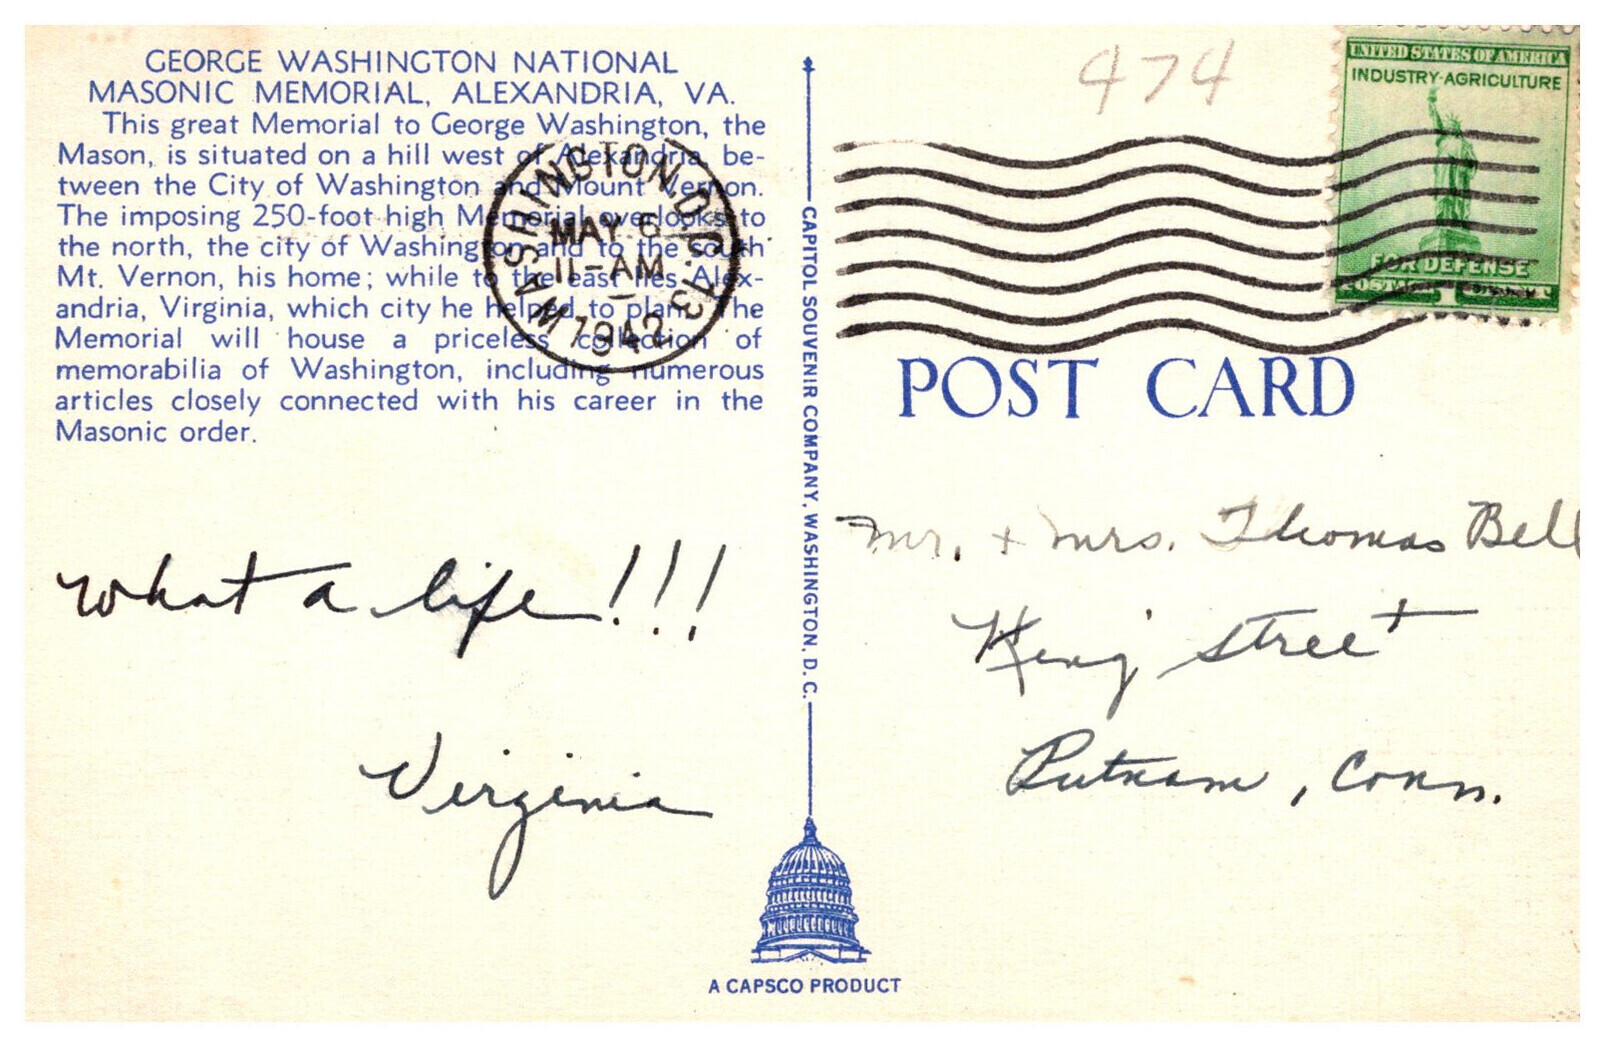 GEORGE WASHINGTON NATIONAL
MASONIC MEMORIAL, ALEXANDRIA, VA.
This great Memorial to George Washington, the
Mason, is situated on a hill west of Alexandria, be-
tween the City of Washington and Mount Vernon.
The imposing 250-foot high Memorial overlooks to
the north, the city of Washington and to the south
Mt. Vernon, his home; while to the east lies Alex-
andria, Virginia, which city he helped to plan. The
Memorial will house a priceless collection of
memorabilia of Washington, including numerous
articles closely connected with his career in the
Masonic order.
WASHINGTON, D.C. 13
MAY 6
11-AM
1942
What a life!!!
Virginia
CAPITOL SOUVENIR COMPANY, WASHINGTON, D. C.
A CAPSCO PRODUCT
474
UNITED STATES OF AMERICA
INDUSTRY-AGRICULTURE
FOR DEFENSE
POST CARD
Mr. + Mrs. Thomas Bell
King Street
Putnam, Conn.